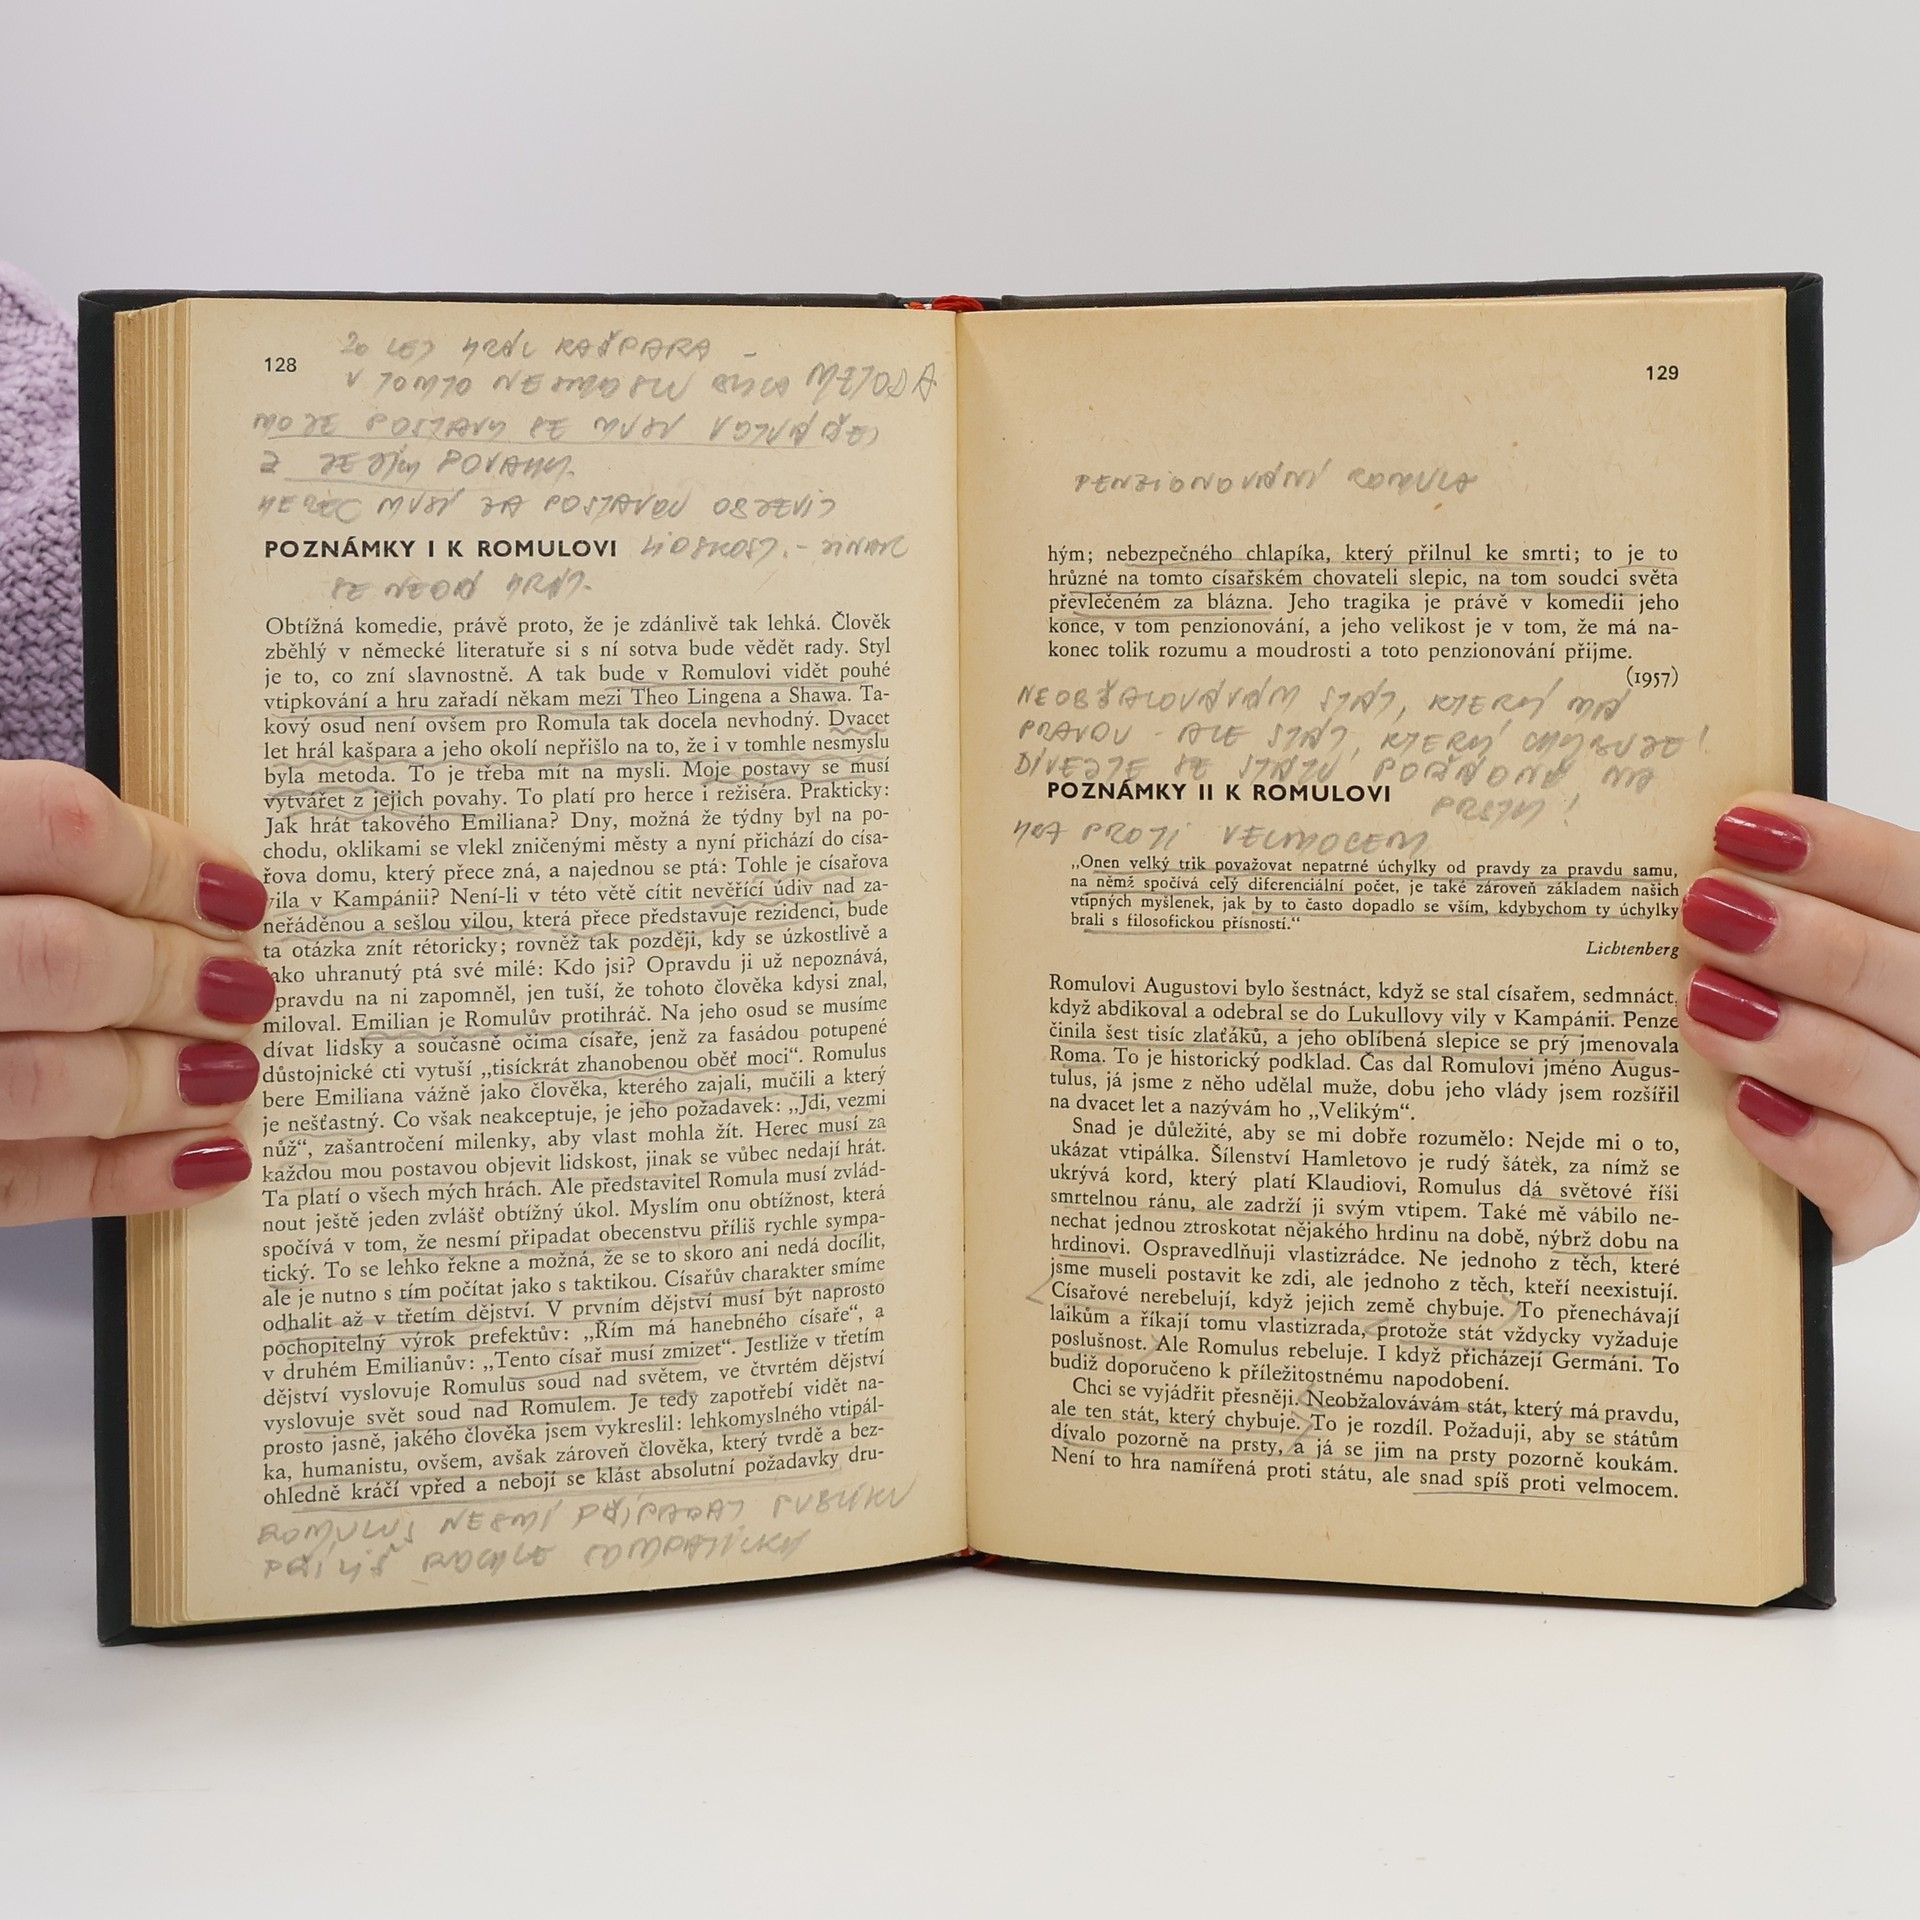 128
20 LET HRÁL KAŠPARA –
V TOMTO NESMYSLU BYLA METODA
MOJE POSTAVY SE MUSÍ VYTVÁŘET
Z JEJICH POVAHY.
HEREC MUSÍ ZA POSTAVOU OBJEVIT
POZNÁMKY I K ROMULOVI LIDSKOST – JINAK
SE NEDÁ HRÁT.
Obtížná komedie, právě proto, že je zdánlivě tak lehká. Člověk
zběhlý v německé literatuře si s ní sotva bude vědět rady. Styl
je to, co zní slavnostně. A tak bude v Romulovi vidět pouhé
vtipkování a hru zařadí někam mezi Theo Lingena a Shawa. Ta-
kový osud není ovšem pro Romula tak docela nevhodný. Dvacet
let hrál kašpara a jeho okolí nepřišlo na to, že i v tomhle nesmyslu
byla metoda. To je třeba mít na mysli. Moje postavy se musí
vytvářet z jejich povahy. To platí pro herce i režiséra. Prakticky:
Jak hrát takového Emiliana? Dny, možná že týdny byl na po-
chodu, oklikami se vlekl zničenými městy a nyní přichází do císa-
řova domu, který přece zná, a najednou se ptá: Tohle je císařova
vila v Kampánii? Není-li v této větě cítit nevěřící údiv nad za-
neřáděnou a sešlou vilou, která přece představuje rezidenci, bude
ta otázka znít rétoricky; rovněž tak později, kdy se úzkostlivě a
jako uhranutý ptá své milé: Kdo jsi? Opravdu ji už nepoznává,
opravdu na ni zapomněl, jen tuší, že tohoto člověka kdysi znal,
miloval. Emilian je Romulův protihráč. Na jeho osud se musíme
dívat lidsky a současně očima císaře, jenž za fasádou potupené
důstojnické cti vytuší „tisíckrát zhanobenou oběť moci“. Romulus
bere Emiliana vážně jako člověka, kterého zajali, mučili a který
je nešťastný. Co však neakceptuje, je jeho požadavek: „Jdi, vezmi
nůž“, zašantročení milenky, aby vlast mohla žít. Herec musí za
každou mou postavou objevit lidskost, jinak se vůbec nedají hrát.
Ta platí o všech mých hrách. Ale představitel Romula musí zvlád-
nout ještě jeden zvlášť obtížný úkol. Myslím onu obtížnost, která
spočívá v tom, že nesmí připadat obecenstvu příliš rychle sympa-
tický. To se lehko řekne a možná, že se to skoro ani nedá docílit,
ale je nutno s tím počítat jako s taktikou. Císařův charakter smíme
odhalit až v třetím dějství. V prvním dějství musí být naprosto
pochopitelný výrok prefektův: „Řím má hanebného císaře“, a
v druhém Emilianův: „Tento císař musí zmizet“. Jestliže v třetím
dějství vyslovuje Romulus soud nad světem, ve čtvrtém dějství
vyslovuje svět soud nad Romulem. Je tedy zapotřebí vidět na-
prosto jasně, jakého člověka jsem vykreslil: lehkomyslného vtipál-
ka, humanistu, ovšem, avšak zároveň člověka, který tvrdě a bez-
ohledně kráčí vpřed a nebojí se klást absolutní požadavky dru-
ROMULUS NESMÍ PŘIPADAT PUBLIKU
PŘÍLIŠ SYMPATICKÝ
129
PENZIONOVÁNÍ ROMULA
hým; nebezpečného chlapíka, který přilnul ke smrti; to je to
hrůzné na tomto císařském chovateli slepic, na tom soudci světa
převlečeném za blázna. Jeho tragika je právě v komedii jeho
konce, v tom penzionování, a jeho velikost je v tom, že má na-
konec tolik rozumu a moudrosti a toto penzionování přijme.
(1957)
NEOBŽALOVÁVÁM STÁT, KTERÝ MÁ
PRAVDU – ALE STÁT, KTERÝ CHYBUJE!
DÍVEJTE SE STÁTU POŘÁDNĚ NA
PRSTY!
POZNÁMKY II K ROMULOVI
HRA PROTI VELMOCEM
„Onen velký trik považovat nepatrné úchylky od pravdy za pravdu samu,
na němž spočívá celý diferenciální počet, je také zároveň základem našich
vtipných myšlenek, jak by to často dopadlo se vším, kdybychom ty úchylky
brali s filosofickou přísností.“
Lichtenberg
Romulovi Augustovi bylo šestnáct, když se stal císařem, sedmnáct,
když abdikoval a odebral se do Lukullovy vily v Kampánii. Penze
činila šest tisíc zlaťáků, a jeho oblíbená slepice se prý jmenovala
Roma. To je historický podklad. Čas dal Romulovi jméno Augus-
tulus, já jsme z něho udělal muže, dobu jeho vlády jsem rozšířil
na dvacet let a nazývám ho „Velikým“.
Snad je důležité, aby se mi dobře rozumělo: Nejde mi o to,
ukázat vtipálka. Šílenství Hamletovo je rudý šátek, za nímž se
ukrývá kord, který platí Klaudiovi, Romulus dá světové říši
smrtelnou ránu, ale zadrží ji svým vtipem. Také mě vábilo ne-
nechat jednou ztroskotat nějakého hrdinu na době, nýbrž dobu na
hrdinovi. Ospravedlňuji vlastizrádce. Ne jednoho z těch, které
jsme museli postavit ke zdi, ale jednoho z těch, kteří neexistují.
Císařové nerebelují, když jejich země chybuje. To přenechávají
laikům a říkají tomu vlastizrada, protože stát vždycky vyžaduje
poslušnost. Ale Romulus rebeluje. I když přicházejí Germáni. To
budiž doporučeno k příležitostnému napodobení.
Chci se vyjádřit přesněji. Neobžalovávám stát, který má pravdu,
ale ten stát, který chybuje. To je rozdíl. Požaduji, aby se státům
dívalo pozorně na prsty, a já se jim na prsty pozorně koukám.
Není to hra namířená proti státu, ale snad spíš proti velmocem.